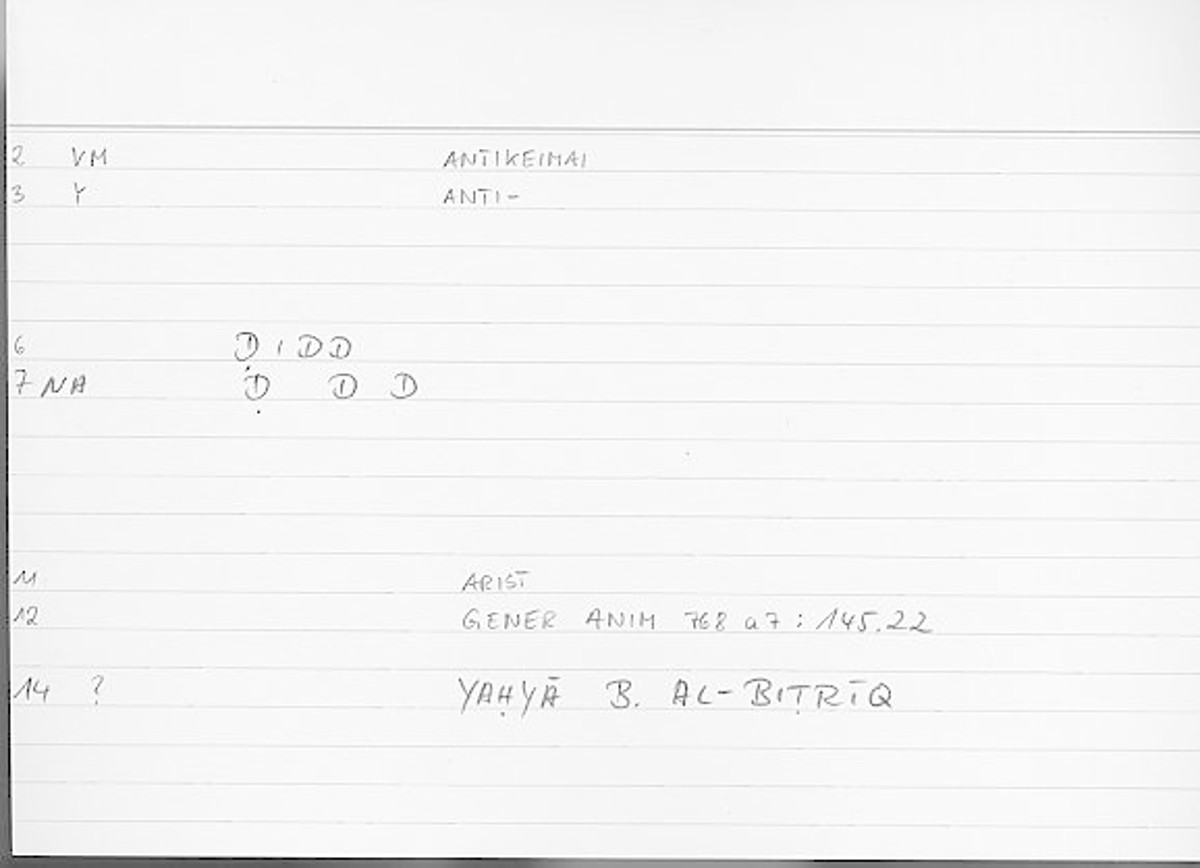 2 VM ANTIKEIMAI
3 Y ANTI-
6 ḌIDD
7 NA Ḍ D D
11 ARIST
12 GENER ANIM 768 a7 : 145.22
14 ? YAḤYĀ B. AL-BIṬRĪQ